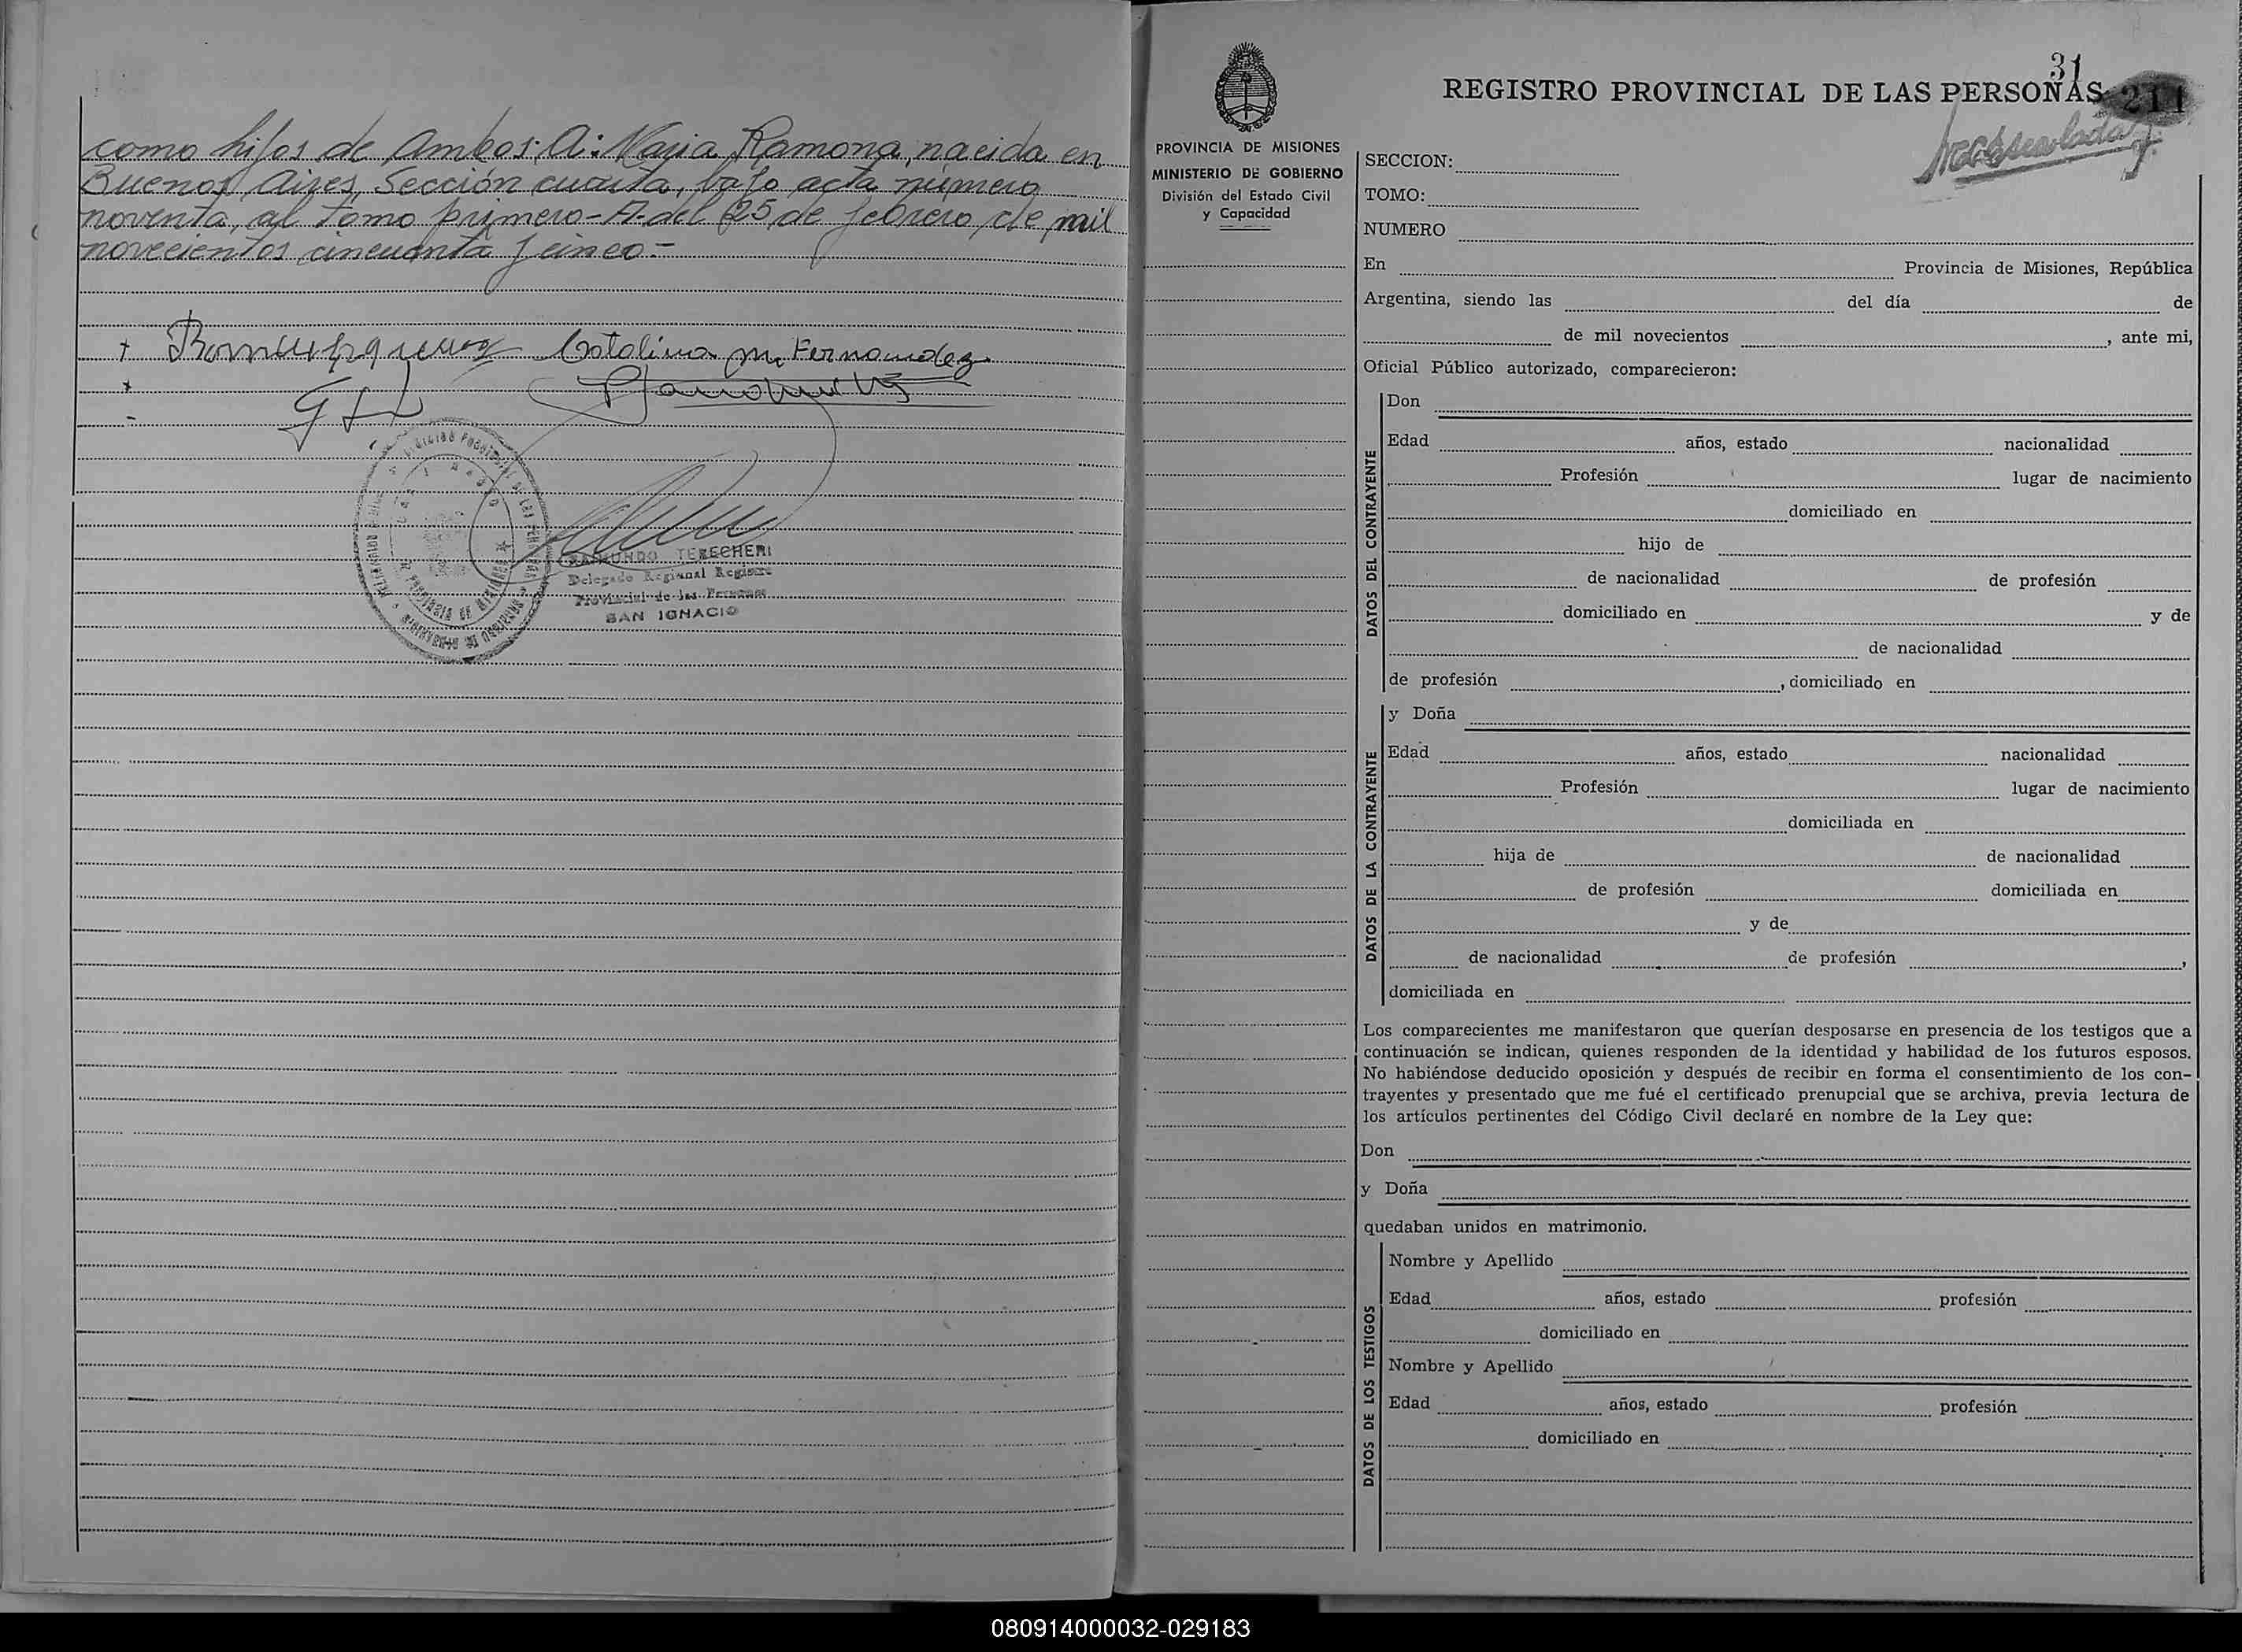 como hijos de Ambos: A: Maria Ramona, nacida en
Buenos Aires, Sección cuarta, bajo acta número
noventa, al tomo primero-A-del 25 de febrero, de mil
novecientos cincuenta y cinco.-
Catalina M. Fernandez
RAIMUNDO TERECHERI
Delegado Regional Registro
Provincial de las Personas
SAN IGNACIO
PROVINCIA DE MISIONES
MINISTERIO DE GOBIERNO
División del Estado Civil
y Capacidad
31
REGISTRO PROVINCIAL DE LAS PERSONAS
211
SECCION:
TOMO:
NUMERO
En Provincia de Misiones, República
Argentina, siendo las del día de
de mil novecientos , ante mi,
Oficial Público autorizado, comparecieron:
DATOS DEL CONTRAYENTE
Don
Edad años, estado nacionalidad
Profesión lugar de nacimiento
domiciliado en
hijo de
de nacionalidad de profesión
domiciliado en y de
de nacionalidad
de profesión , domiciliado en
DATOS DE LA CONTRAYENTE
y Doña
Edad años, estado nacionalidad
Profesión lugar de nacimiento
domiciliada en
hija de de nacionalidad
de profesión domiciliada en
y de
de nacionalidad de profesión ,
domiciliada en
Los comparecientes me manifestaron que querían desposarse en presencia de los testigos que a
continuación se indican, quienes responden de la identidad y habilidad de los futuros esposos.
No habiéndose deducido oposición y después de recibir en forma el consentimiento de los con-
trayentes y presentado que me fué el certificado prenupcial que se archiva, previa lectura de
los artículos pertinentes del Código Civil declaré en nombre de la Ley que:
Don
y Doña
quedaban unidos en matrimonio.
DATOS DE LOS TESTIGOS
Nombre y Apellido
Edad años, estado profesión
domiciliado en
Nombre y Apellido
Edad años, estado profesión
domiciliado en
080914000032-029183